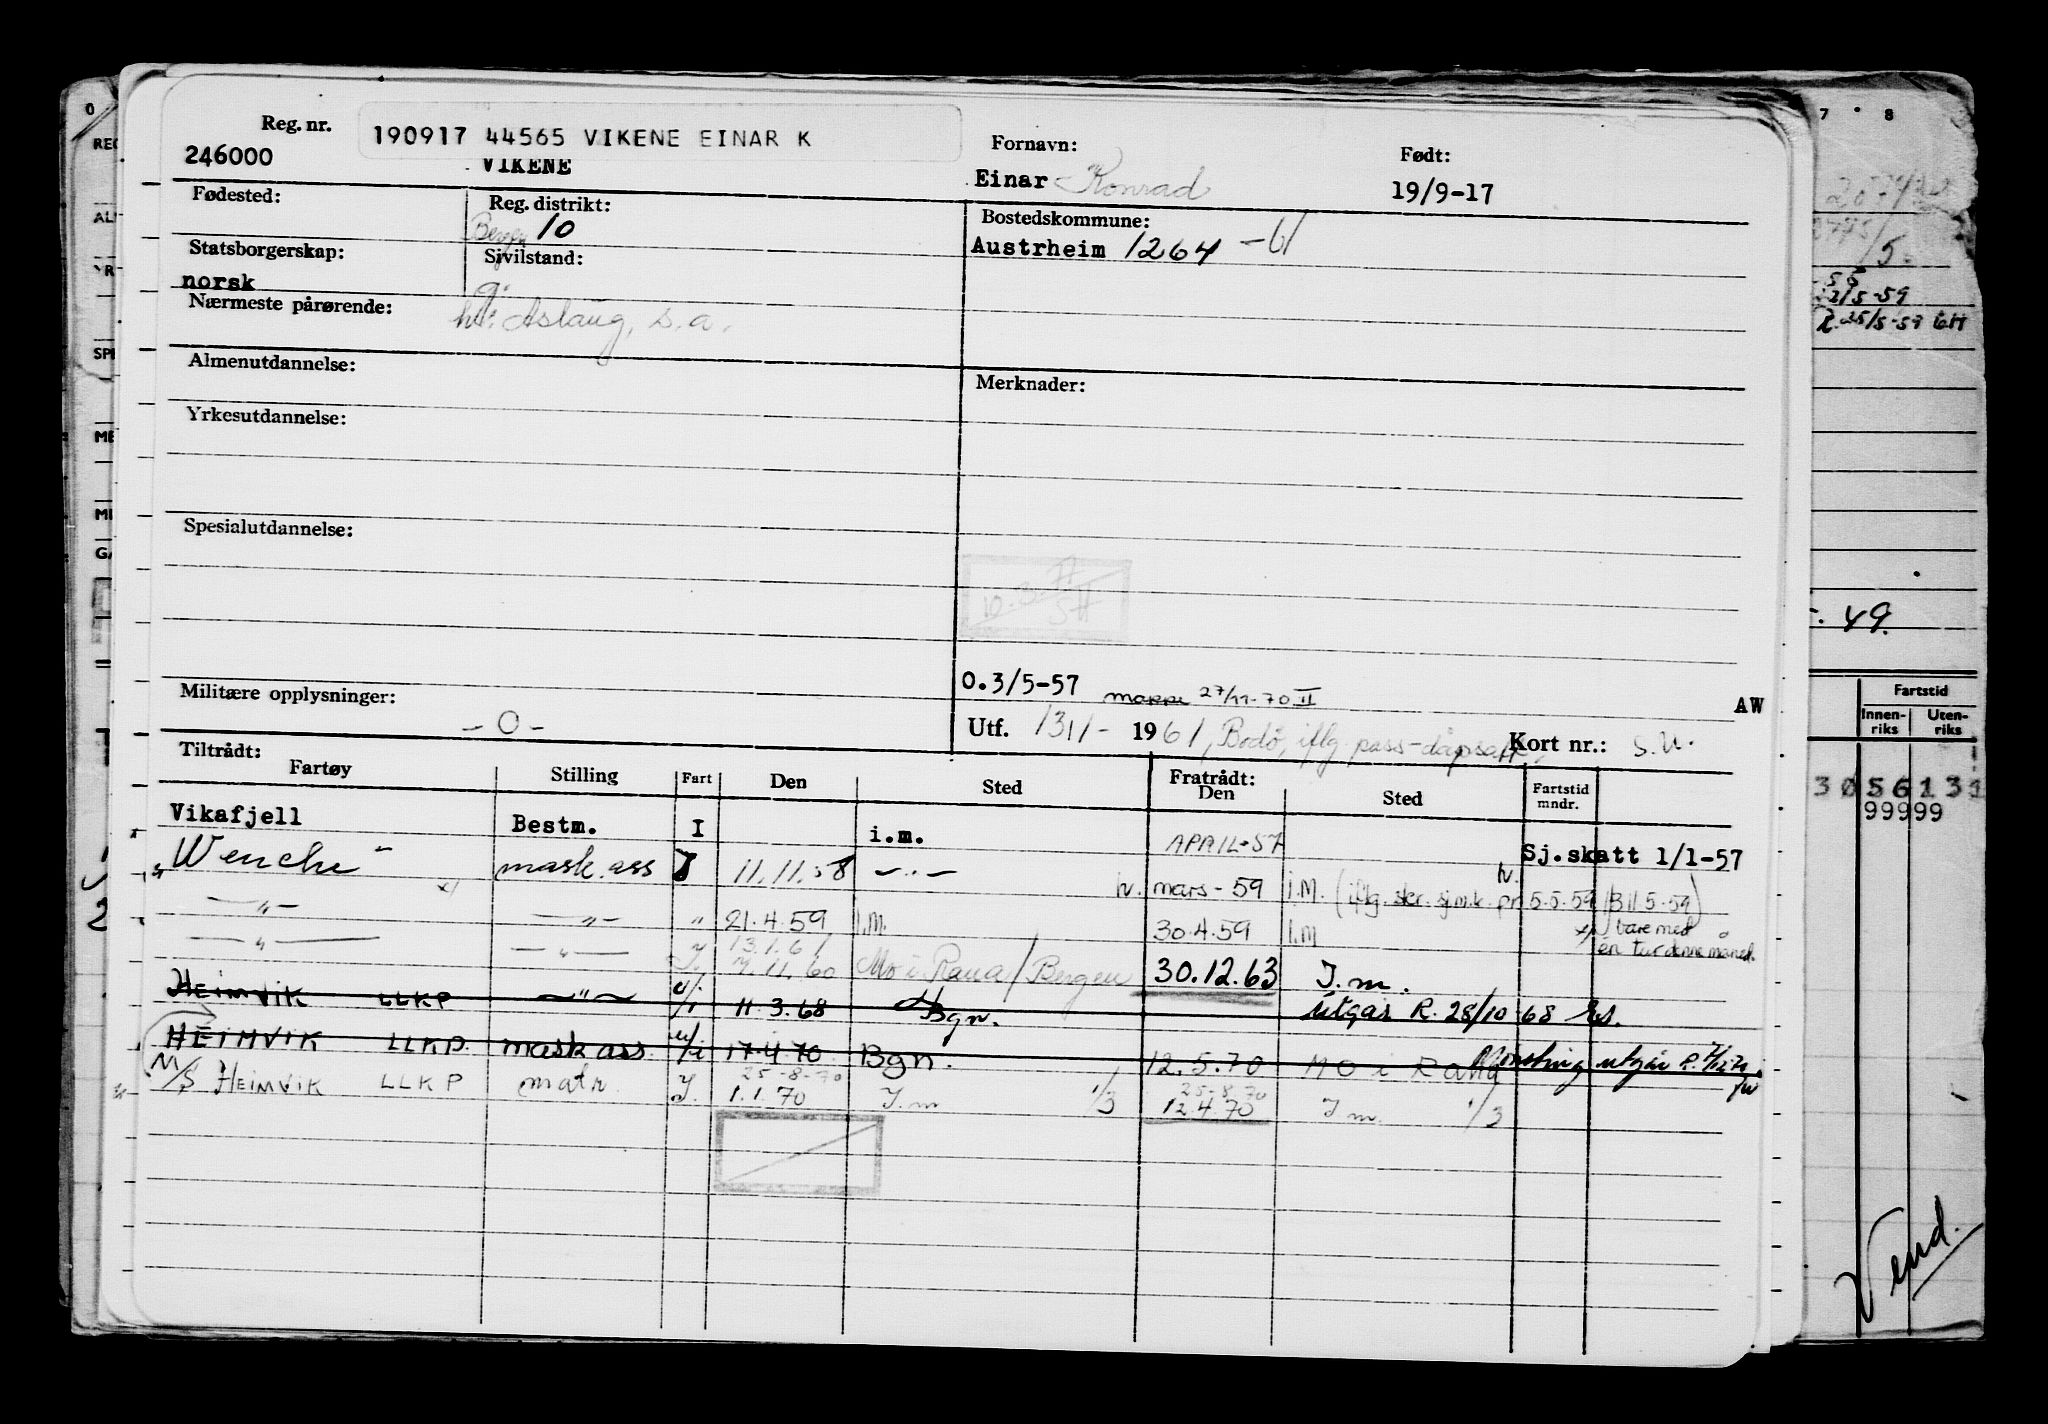 Reg. nr. 190917 44565 VIKENE EINAR K Fornavn: Født:
246000 VIKENE Einar Konrad 19/9-17
Fødested: Reg. distrikt: Bostedskommune:
Bergen 10 Austrheim 1264 -61
Statsborgerskap: Sivilstand:
norsk g.
Nærmeste pårørende: h: Aslaug, s.a.
Almenutdannelse: Merknader:
Yrkesutdannelse:
Spesialutdannelse:
O.3/5-57 mappe 27/11-70 II AW
Militære opplysninger: -0- Utf. 1311- 1961, Bodø, iflg. pass-dåpsatt. Kort nr.: S.U.
Tiltrådt: Fratrådt:
Fartøy Stilling Fart Den Sted Den Sted Fartstid mndr.
Vikafjell Bestm. I i.m. APRIL-57 Sj.skatt 1/1-57
"Wenche" mask.ass I 11.11.58 -"- h. mars-59 I.M. (iflg. skr. sjm.k. pr. 5.5.59 / 311.5-59)
x) -"- -"- " 21.4.59 I.M. 30.4.59 I.M x) bare med
én tur denne måned.
-"- -"- I. 13.1.61
7.11.60 Mo i Rana/Bergen 30.12.63 I.m.
HEIMVIK LLKP -"- u/i 11.3.68 Bgn. Utgår R. 28/10 68
HEIMVIK LLKP mask ass. u/i 17.4.70 Bgn. 12.5.70 Mo i Rana Mønstring utgår
25-8-70 25-8-70
M/S HEIMVIK LLKP matr. I. 1.1.70 I.m 1/3 12.4.70 I m. 1/3
7 8
2/5-59
R. 25/5-59 GH
49.
Fartstid
Innen-riks Uten-riks
3056131
99999
Vend.